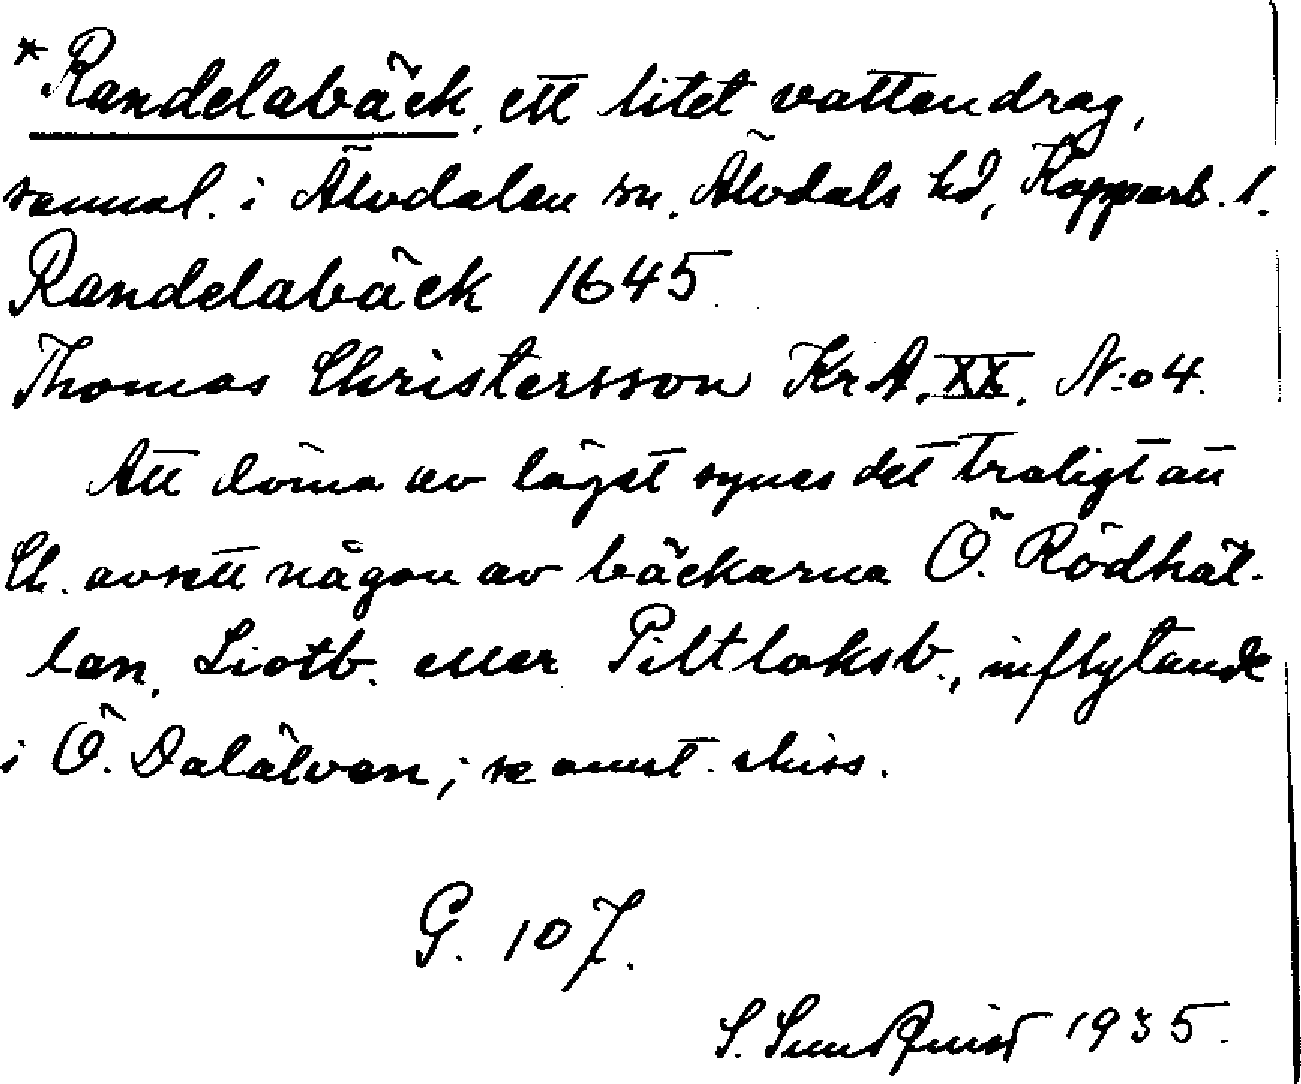 *Randelabäck, ett litet vattendrag,
sannol. i Älvdalen sn. Älvdals hd, Kopparb. l.
Randelabäck 1645
Thomas Christersson KrA. XX. N:o 4.
Att döma av läget synes det troligt att
Ch. avsett någon av bäckarna Ö. Rödhäl-
lan, Liotb. eller Piltloksb., inflytande
i Ö. Dalälven; se annt. skiss.
G. 10 7.
S. Sundquist 1935.